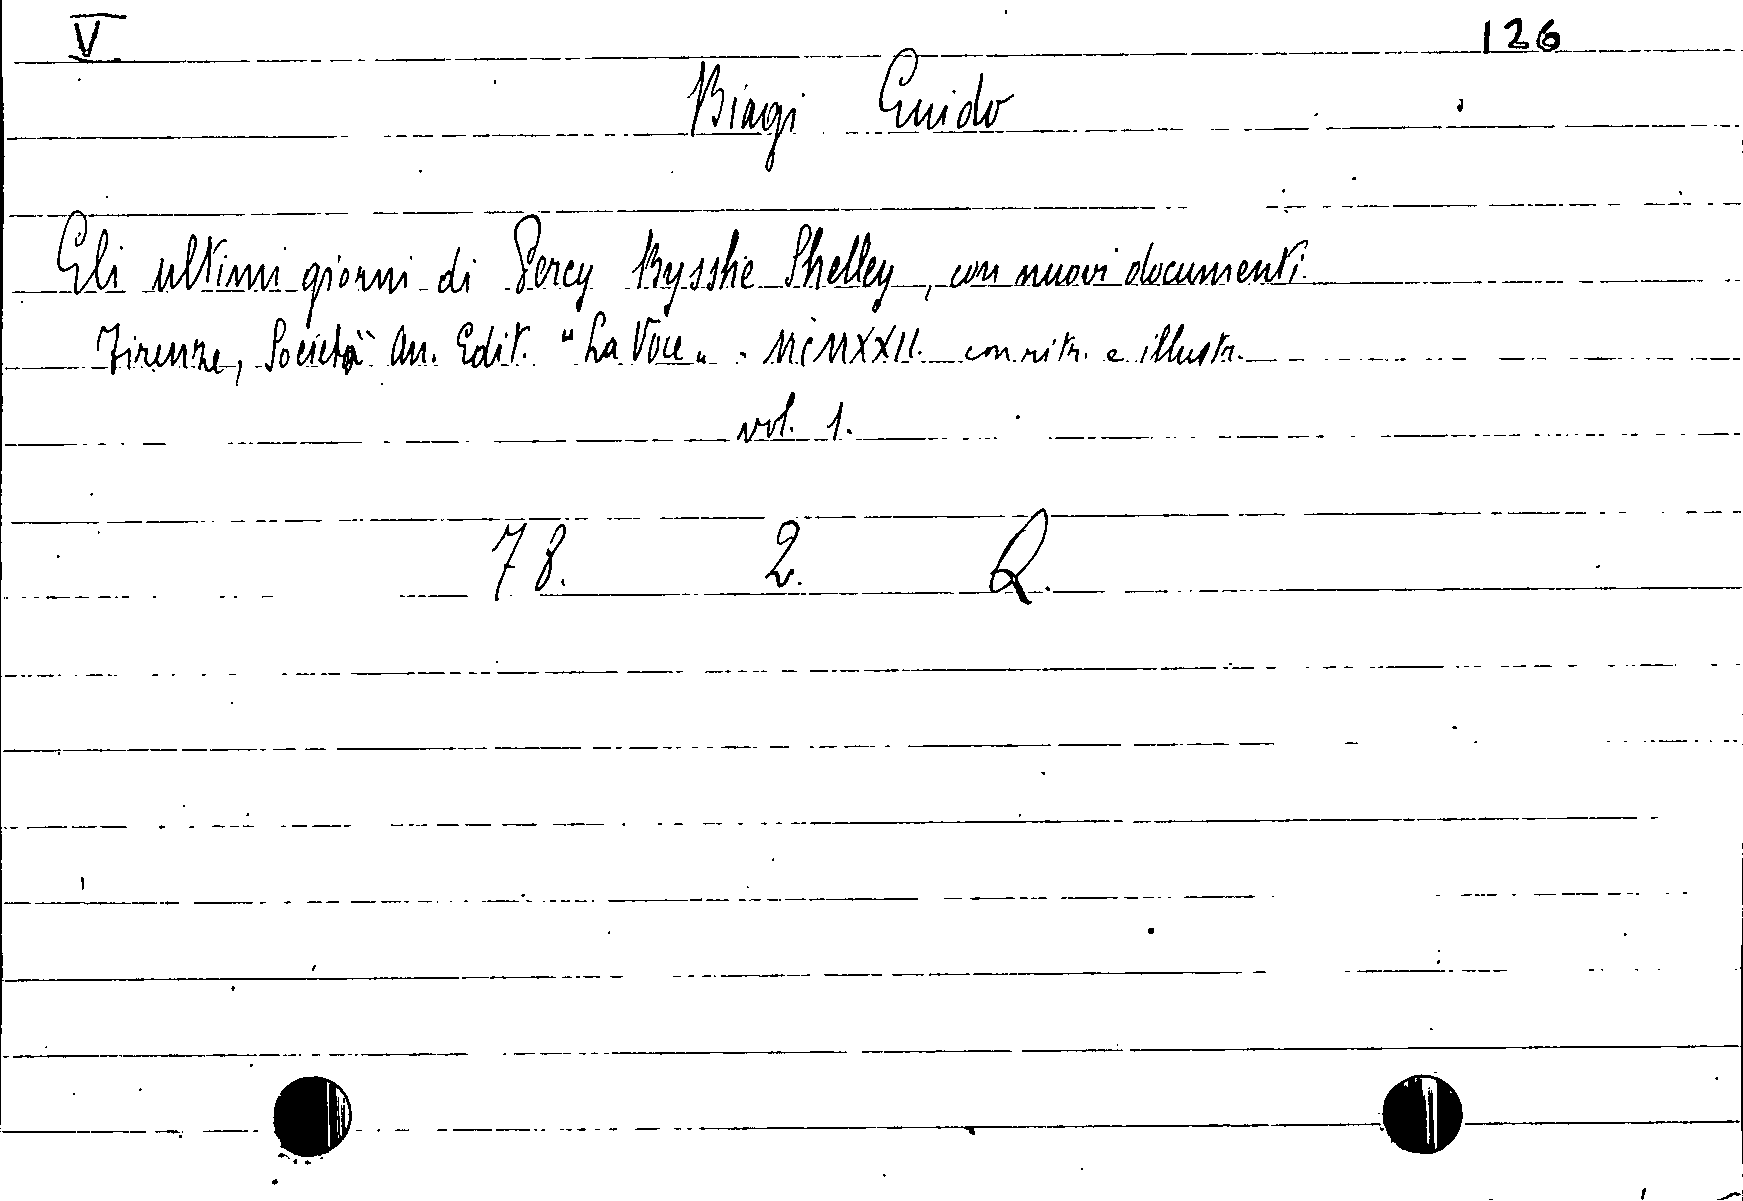 V 126
Biagi Guido
Gli ultimi giorni di Percy Bysshe Shelley, con nuovi documenti.
Firenze, Società An. Edit. "La Voce„. MCMXXII. con ritr. e illustr.
vol. 1.
78. 2. Q.